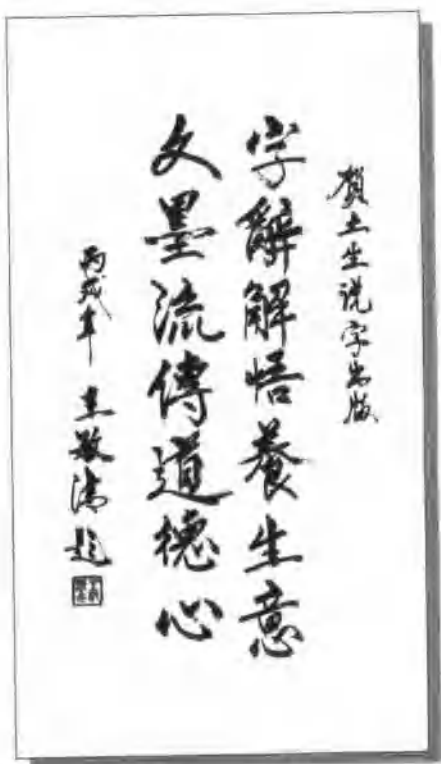 賀土生说字出版
字辭解悟養生意
文墨流傳道德心
丙戌年 王敏清题